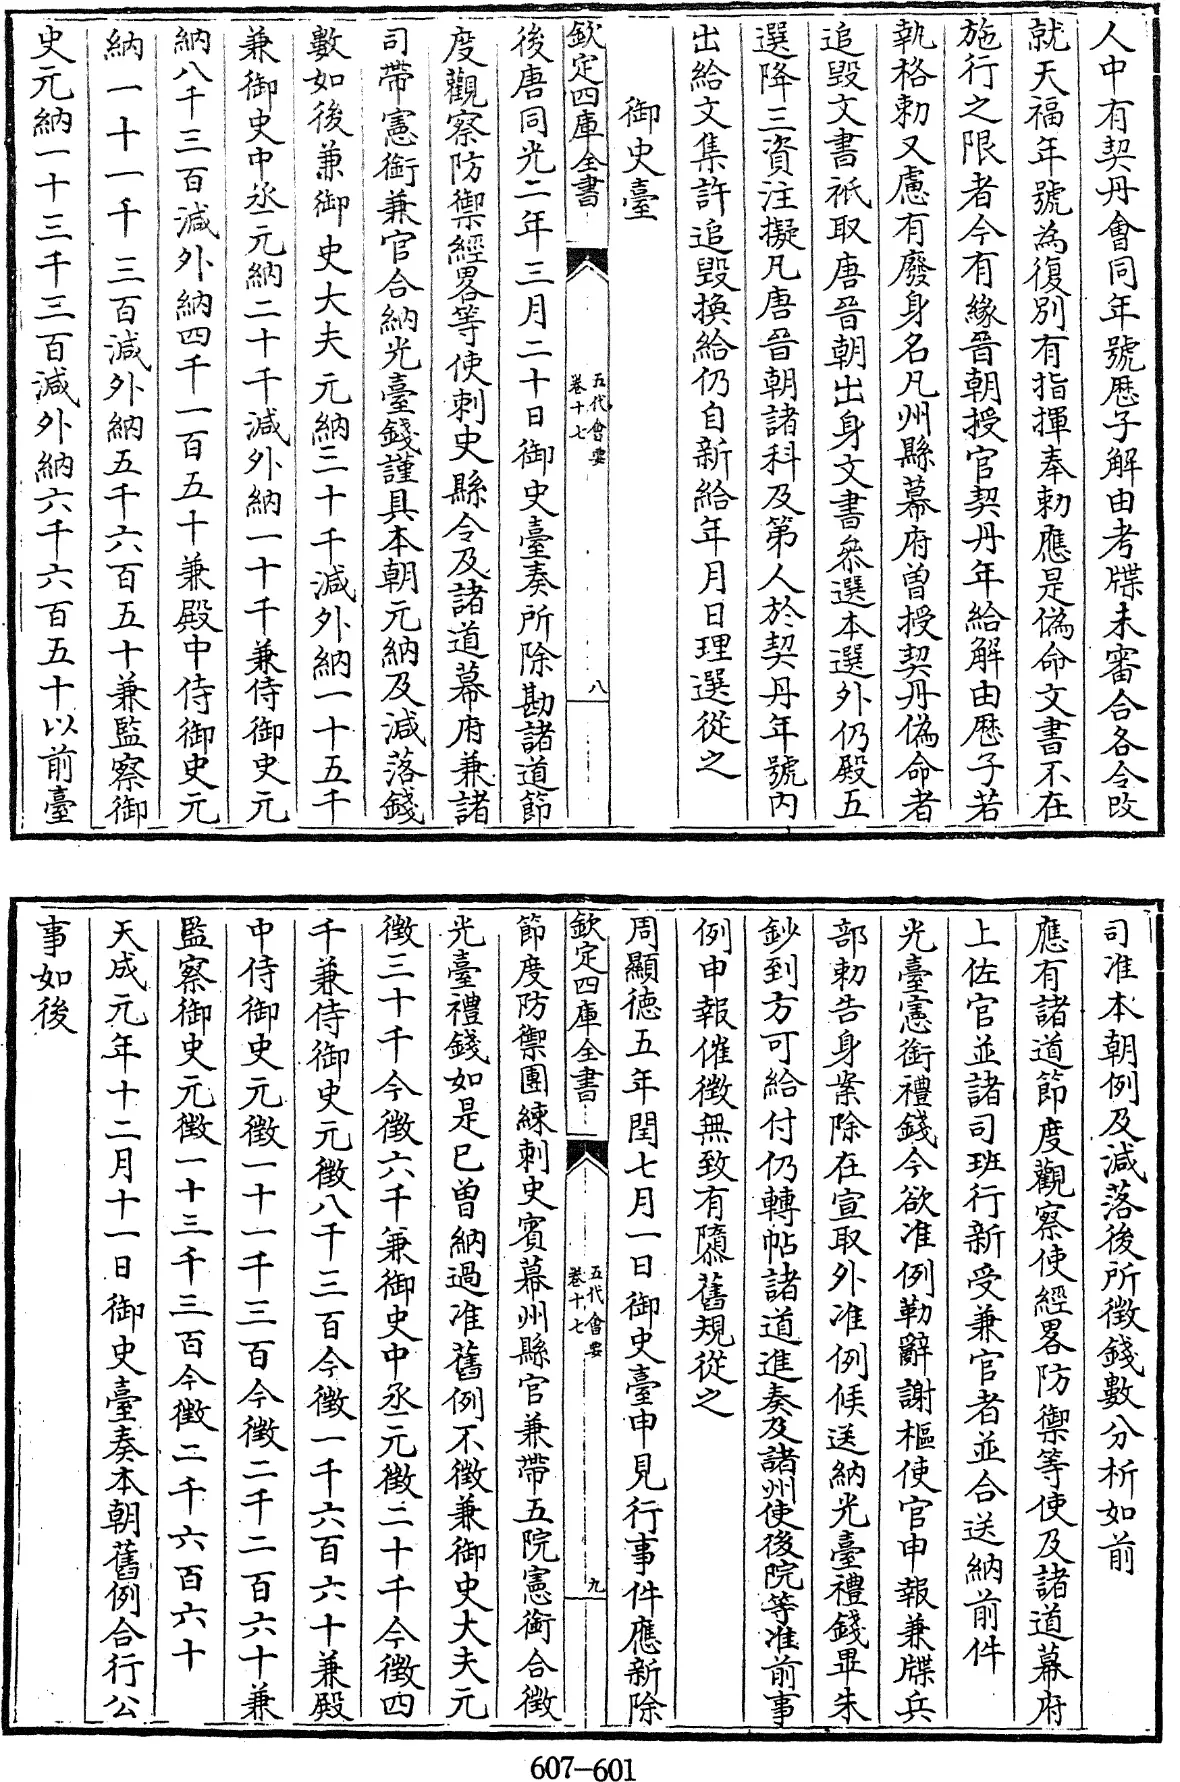 人中有契丹會同年號歷子解由考牒未審合各令改
就天福年號為復別有指揮奉勅應是偽命文書不在
施行之限者今有緣晉朝授官契丹年給解由歷子若
執格勅又慮有廢身名凡州縣幕府曾授契丹偽命者
追毀文書祇取唐晉朝出身文書叅選本選外仍殿五
選降三資注擬凡唐晉朝諸科及第人於契丹年號内
出給文集許追毀換給仍自新給年月日理選從之
御史臺
欽定四庫全書
五代會要
卷十七
八
後唐同光二年三月二十日御史臺奏所除勘諸道節
度觀察防禦經畧等使刺史縣令及諸道幕府兼諸
司帶憲銜兼官合納光臺錢謹具本朝元納及減落錢
數如後兼御史大夫元納三十千減外納一十五千
兼御史中丞元納二十千減外納一十千兼侍御史元
納八千三百減外納四千一百五十兼殿中侍御史元
納一十一千三百減外納五千六百五十兼監察御
史元納一十三千三百減外納六千六百五十以前臺
司准本朝例及減落後所徴錢數分析如前
應有諸道節度觀察使經畧防禦等使及諸道幕府
上佐官並諸司班行新受兼官者並合送納前件
光臺憲銜禮錢今欲准例勒辭謝樞使官申報兼牒兵
部勅告身案除在宣取外准例候送納光臺禮錢畢朱
鈔到方可給付仍轉帖諸道進奏及諸州使後院等准前事
例申報催徴無致有隳舊規從之
周顯德五年閏七月一日御史臺申見行事件應新除
欽定四庫全書
五代會要
卷十七
九
節度防禦團練刺史賓幕州縣官兼帶五院憲銜合徴
光臺禮錢如是已曾納過准舊例不徴兼御史大夫元
徴三十千今徴六千兼御史中丞元徴二十千今徴四
千兼侍御史元徴八千三百今徴一千六百六十兼殿
中侍御史元徴一十一千三百今徴二千二百六十兼
監察御史元徴一十三千三百今徴二千六百六十
天成元年十二月十一日御史臺奏本朝舊例合行公
事如後
607-601